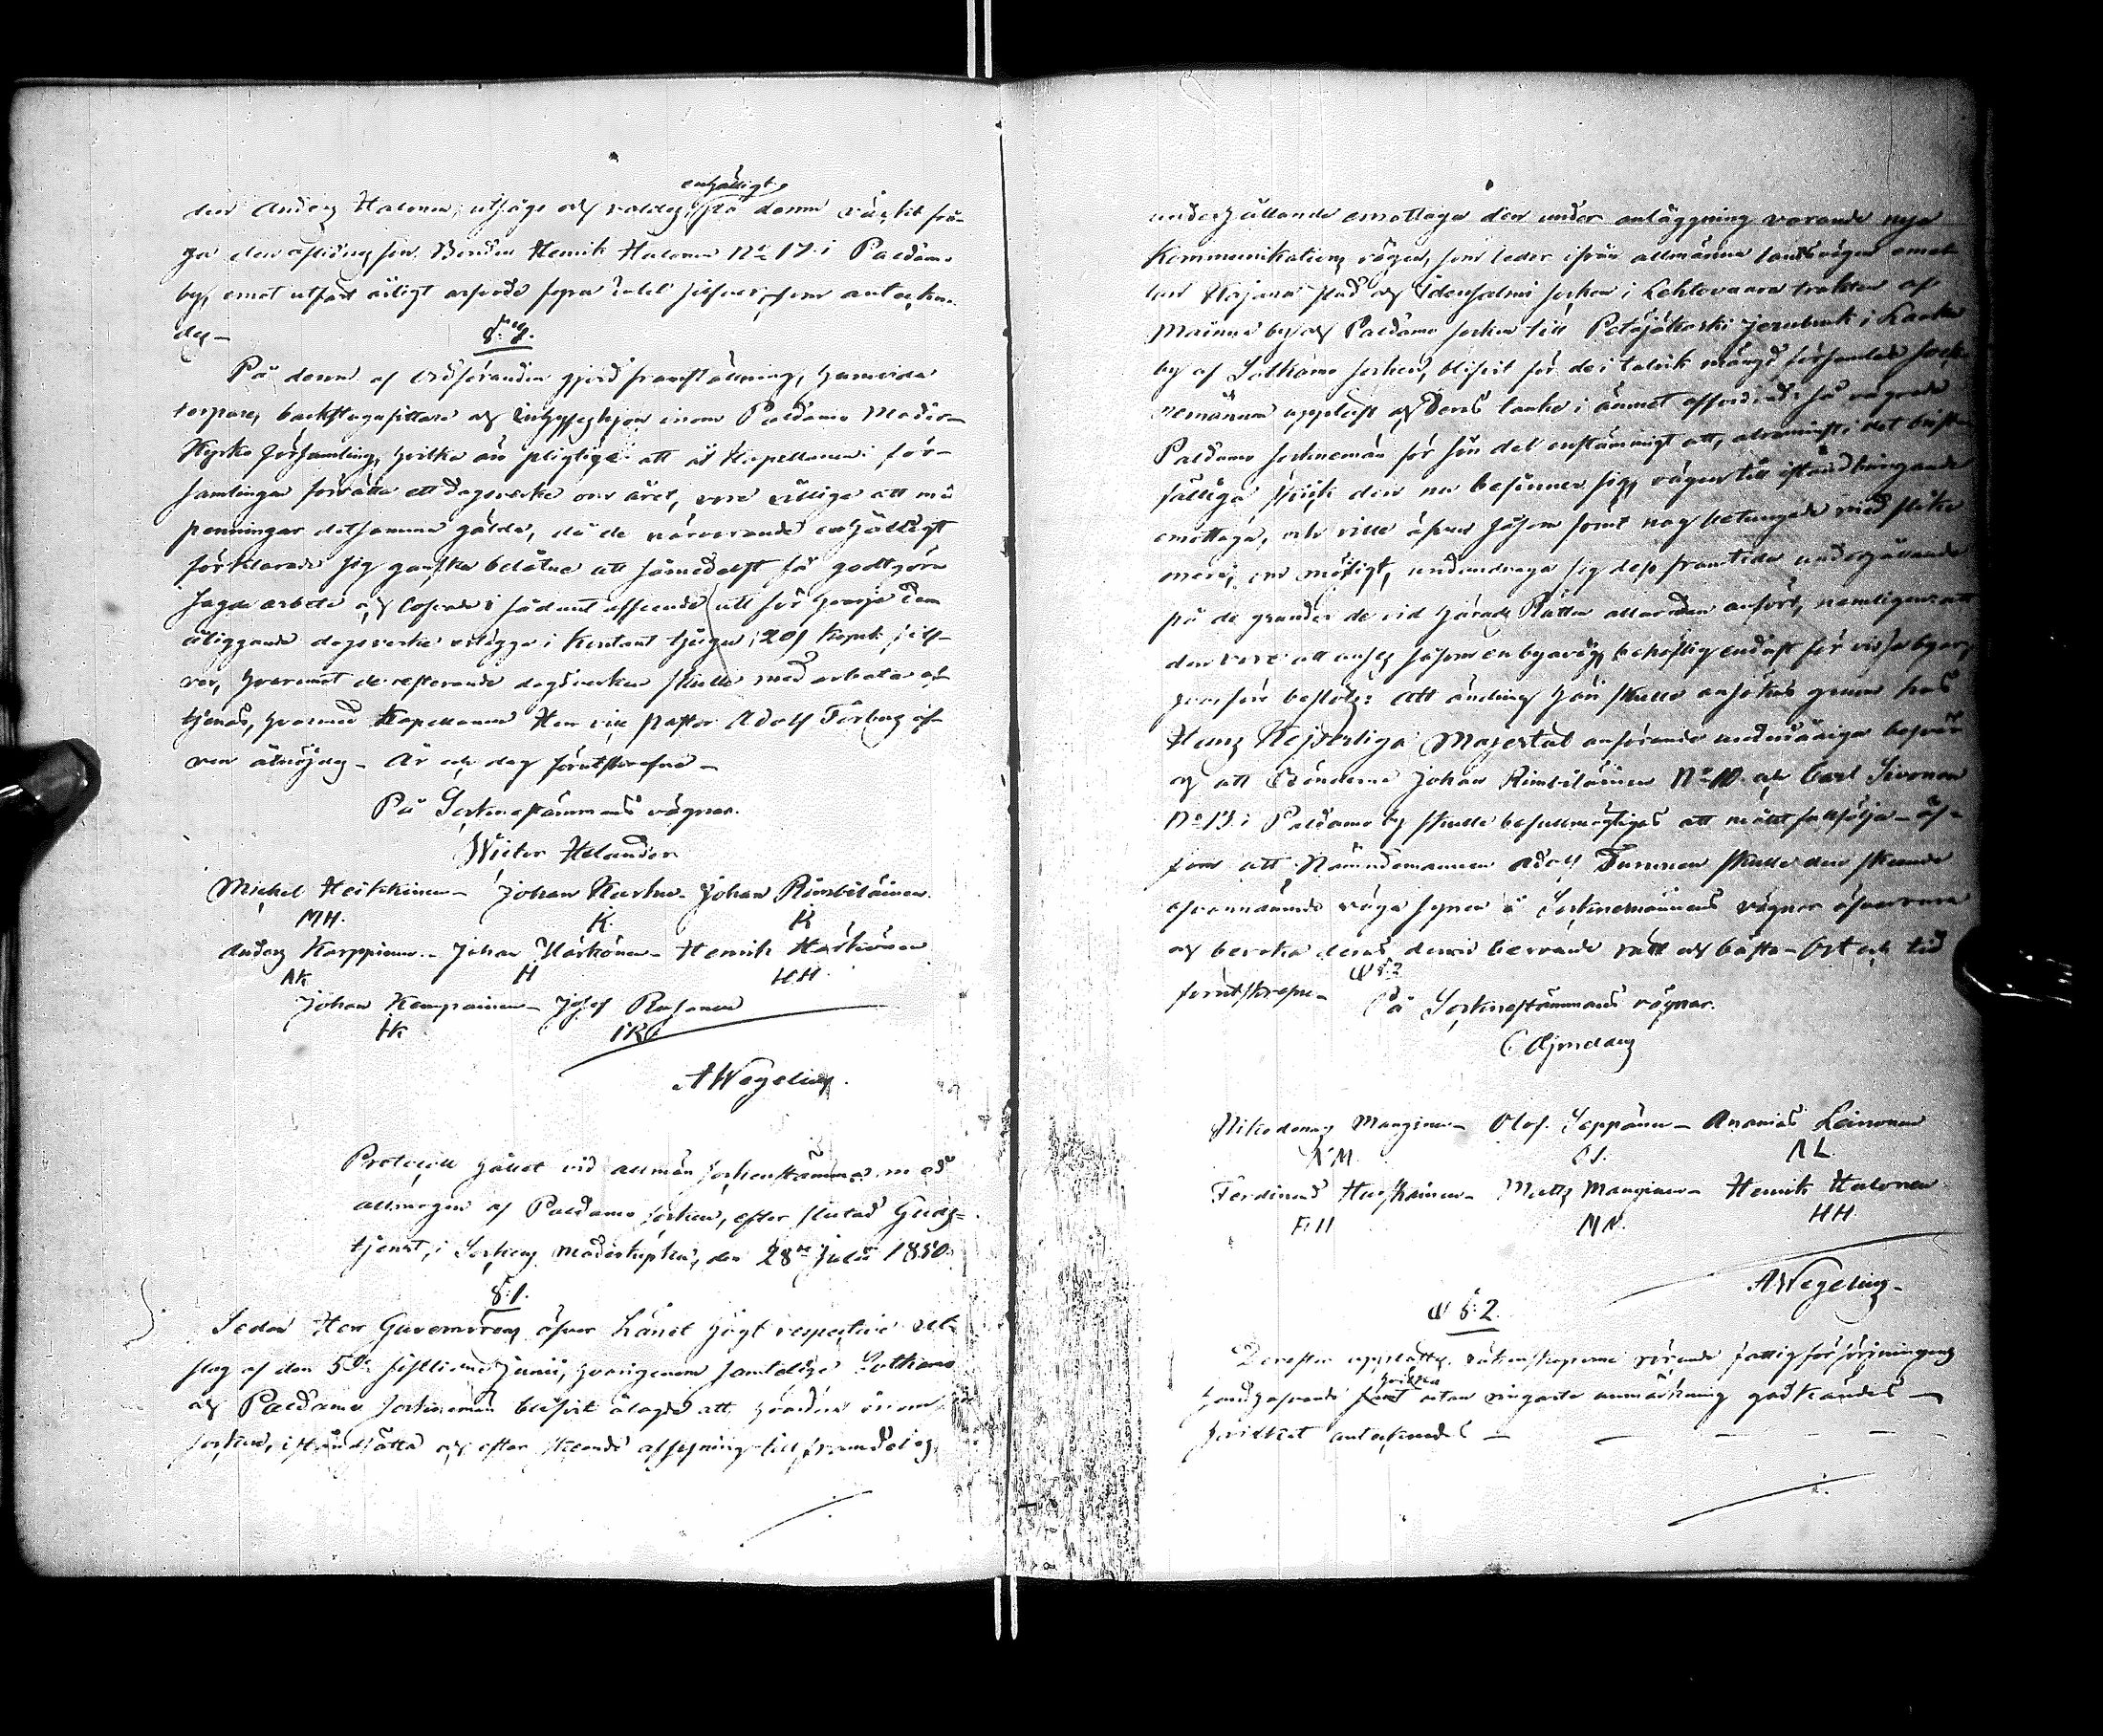 enhälligt
den Anders Halonen, utsågs och valdes, på denne väckte frå-
ga den aflidnes son Bonden Henrik Halonen No 17. i Paldamo
by, emot utfäst årligt arfvode fyra rubel silfver, som anteckna-
des –
På denna af Ordföranden gjord framställning, huruvida
torpare, backstugusittare och Inhyseshjon inom Paldamo Moder-
Kyrko församling, hvilka äro pligtige att åt Kapellanen i för-
samlingen förrätta ett dagsverke om året, vore villige att med
penningar detsamma gälda, då de närvarande enhälligt
förklarade sig ganska belåtne att härmedelst få godtgöra
sagde arbete och i sådant afseende att för hvarje dem
åliggande dagsverke erlägga i kontant tjugu (20) kopek silf-
ver, hvaremot de resterande dagsverken skulle med arbete af-
tjenas, hvarmed Kapellanen Herr vice pastor Adolf Forberg äf-
ven åtnöjdes – År och dag förutskrefne –
På Sockenstämmans vägnar.
Wictor Helander
Michel Heikkinen – Johan Karhu – Johan Rimbiläinen.
MH. K. K
Anders Karppinen – Johan Härkönen – Henrik Härkönen
AK H HH.
Johan Kemppainen – Josef
IK
A Wegelius.
Protocoll hållet vid allmän sockenstämma med
allmogen af Paldamo socken, efter slutad Guds-
tjenst, i Sockens moderkyrka, den 28de Julii 1850.
§. 1.
Sedan Herr Guverneurens öfver Länet högt respective ut-
slag af den 5te sistlidne Junii, hvarigenom samtelige Sotkamo
och Paldamo sockenemän blifvit ålagde att, hvardera inom
socken, iståndsätta och efter skeende afsyning till framdeles
underhållande emottaga den under anläggning varande nya
Kommunikations vägen, som leder ifrån allmänna landsvägen emel-
lan Kajana stad och Idensalmi socken i Lehtovaara trakten af
Mainua by och Paldamo socken till Petäjäkoski jernbruk i
by af Sotkamo socken, blifvit för de i talrik mängd församlade socke-
nemännen uppläst och deras tanke i ämnet affordrad; så vägrade
Paldamo sockenemän för sin del enstämmigt att, åtminstone i det brist-
fälliga skick den nu befinner sig, vägen till iståndbringande
emottaga, och ville äfven såsom förut nog betungade med slika
onera, om möjligt, undandraga sig dess framtida underhållande
på de grunder de vid Härads Rätten allaredan anfört, nemligen att
den vore att anses såsom en byaväg, behöflig endast för vissa byar,
hvarföre beslöts: att ändring häri skulle ansökas genom hos
Hans Kejserliga Majestät anförande underdåniga besvär
och att Bönderne Johan Rimbiläinen No 10. och Carl Sivonen
No 13. i Paldamo by skulle befullmägtigas att målet fullfölja – äf-
som att Nämndemannen Adolf Turunen skulle den skeende
ofvannämnde väga synen å Sockenemännens vägnar öfvervara
och bevaka deras dervid beroende rätt och bästa – Ort och tid
förutskrefne –
På Sockenstämmans vägnar.
Nikodemus Manginen – Olof Seppänen – Ananias Leinonen
N M. O S. A L.
Ferdinand Huskainen – Matts Manginen – Henrik Halonen
F. H M M. HH
A Wegelius –
§: 2.
Derefter upplästes räkenskaperne rörande fattigförsörjningens
handhafvande hvilka utan ringaste anmärkning godkändes –
hvilket antecknades –